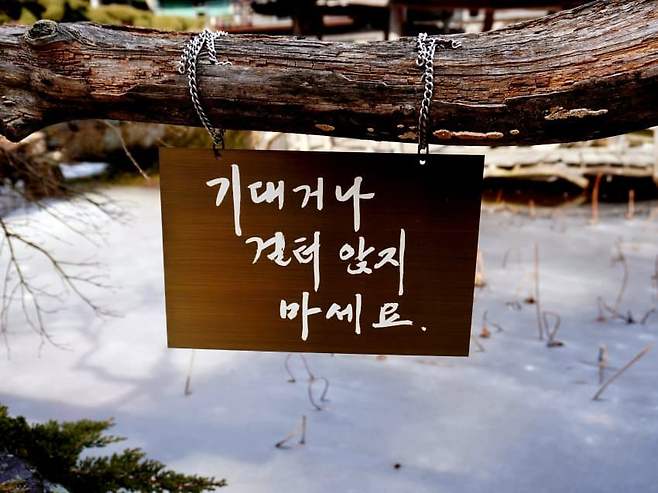 기대거나
걸터 앉지
마세요.